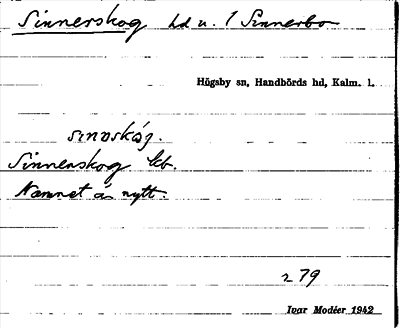 Sinnerskog hd u. 1 Sinnerbo
Högsby sn, Handbörds hd, Kalm. l.
sınəskóg.
Sinnerskog kb.
Namnet är nytt.
279
Ivar Modéer 1942